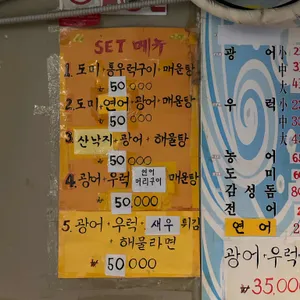 SET 메뉴
1. 도미·통우럭구이·매운탕
₩50,000
2. 도미·연어·광어·매운탕
₩50,000
3. 산낙지·광어·해물탕
₩50,000
4. 광어·우럭 연어머리구이 매운탕
₩50,000
5. 광어·우럭·새우튀김
·해물라면
₩50,000
광어 대
中
小
우럭 大
中
小
농어
도미
감성돔
전어
연어
광어·우럭
₩35,000